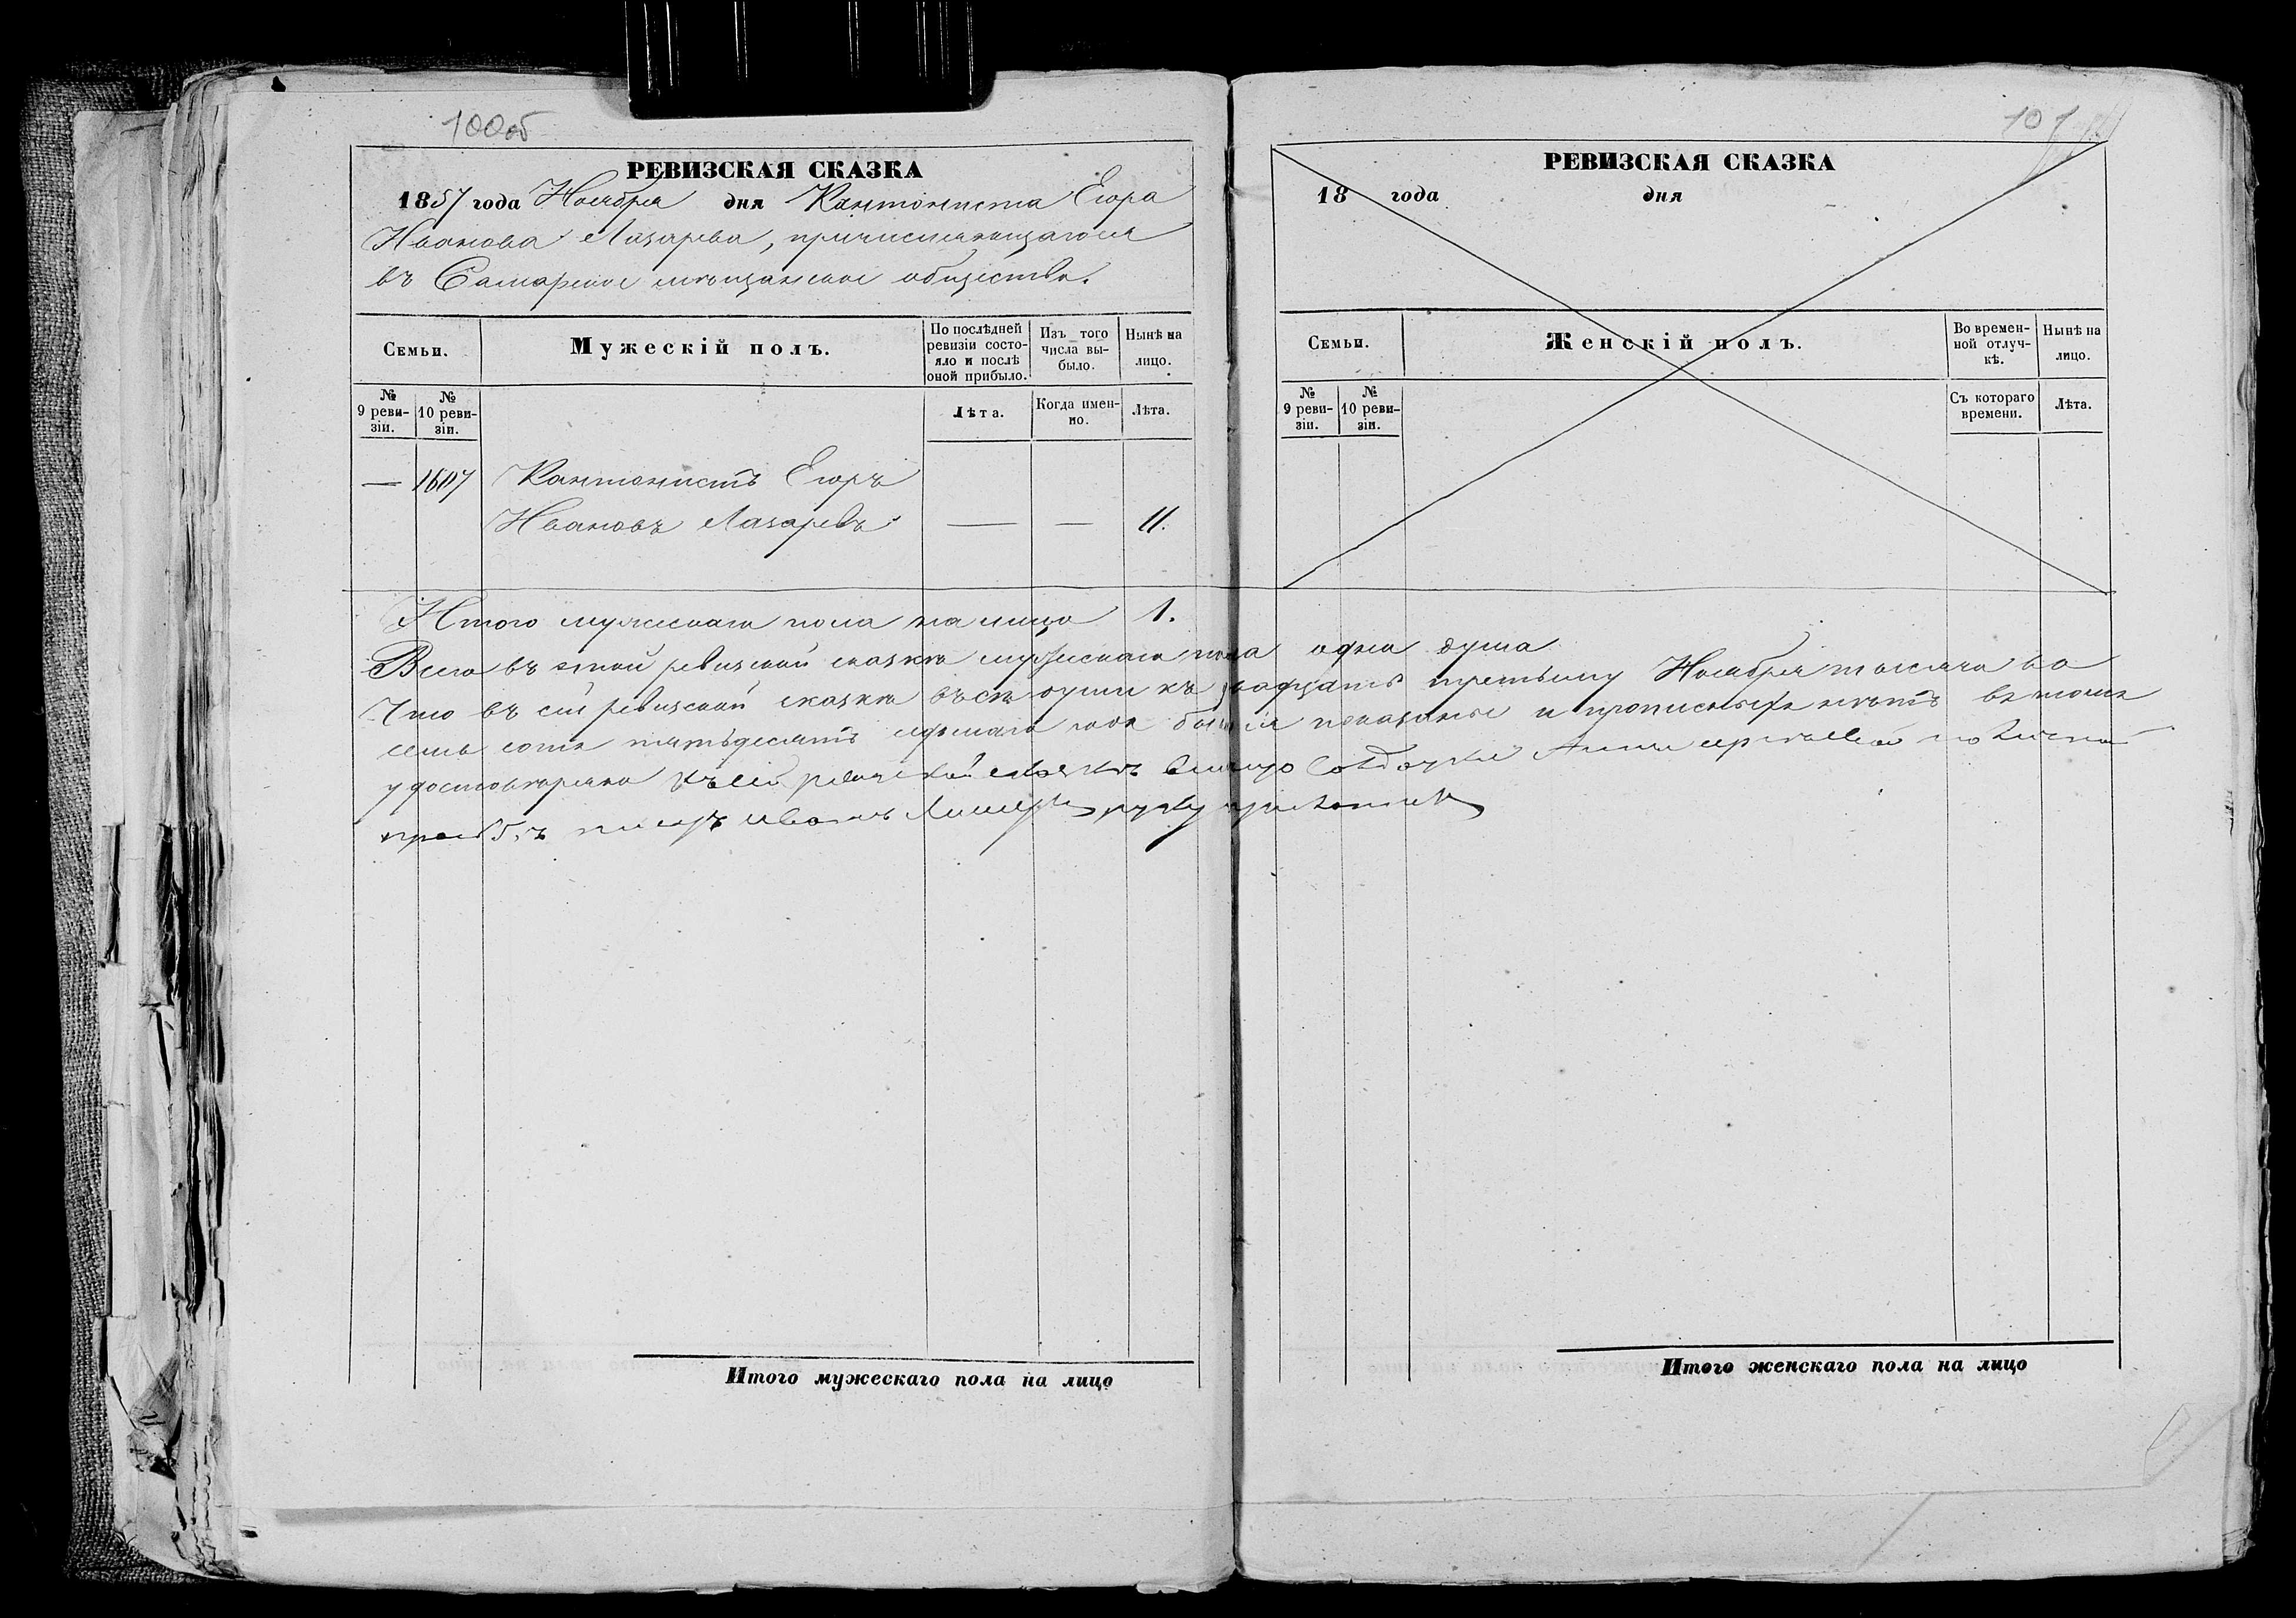 100об
РЕВИЗСКАЯ СКАЗКА
1857 года Ноября дня Кантониста Егора
Иванова Лазарева, причисляющагося
въ Самарское мѣщанское общество.
Семьи.
Мужескій полъ.
По послѣдней ревизіи состояло и послѣ оной прибыло.
Изъ того числа выбыло.
Нынѣ на лицо.
№ 9 ревизіи.
№ 10 ревизіи.
Лѣта.
Когда именно.
Лѣта.
— 1607 Кантонистъ Егоръ
Ивановъ Лазаревъ — — 11.
Итого мужескаго пола на лицо 1.
101
РЕВИЗСКАЯ СКАЗКА
18 года дня
Семьи.
Женскій полъ.
Во временной отлучкѣ.
Нынѣ на лицо.
№ 9 ревизіи.
№ 10 ревизіи.
Съ котораго времени.
Лѣта.
Всего въ этой ревизской сказкѣ мужескаго пола одна душа
Что въ сей ревизской сказкѣ всѣ души къ двадцать третьему Ноября тысяча во
семь сотъ пятьдесятъ седьмаго года бывшія показаны и прописныхъ нѣтъ въ томъ
удостовѣряю Къ сей ревизской сказкѣ вмѣсто Солдатки по личной
прозбѣ Иванъ руку приложилъ
Итого мужескаго пола на лицо
Итого женскаго пола на лицо